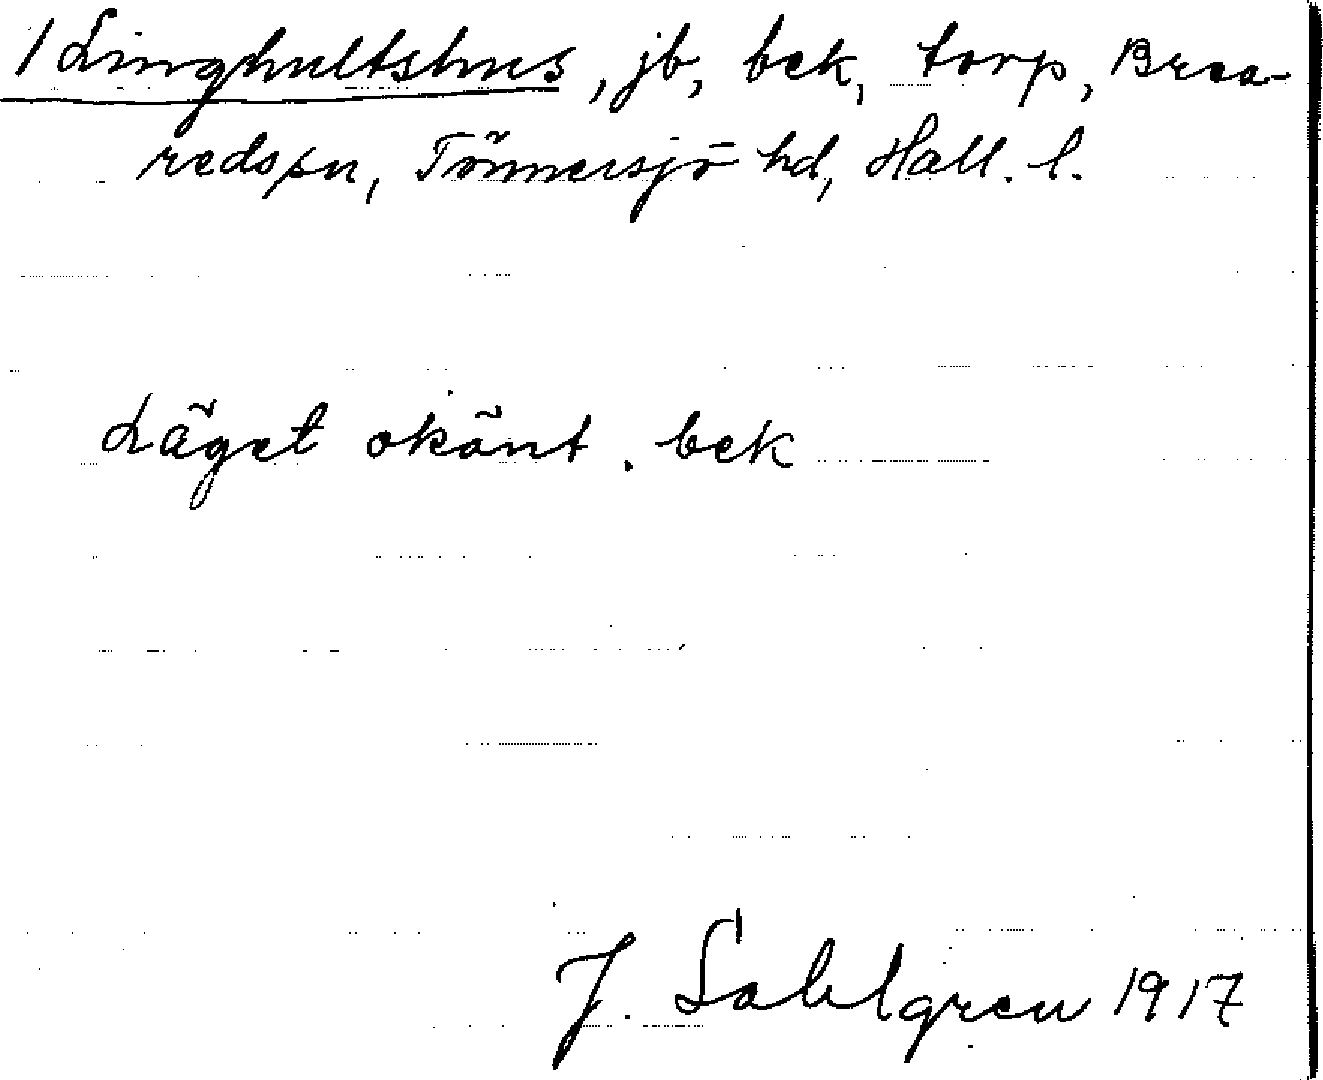 /Linghultshus, jb, bek, torp, Brea-
redssn, Tönnersjö hd, Hall. l.
Läget okänt. bek
J. Sahlgren 1917